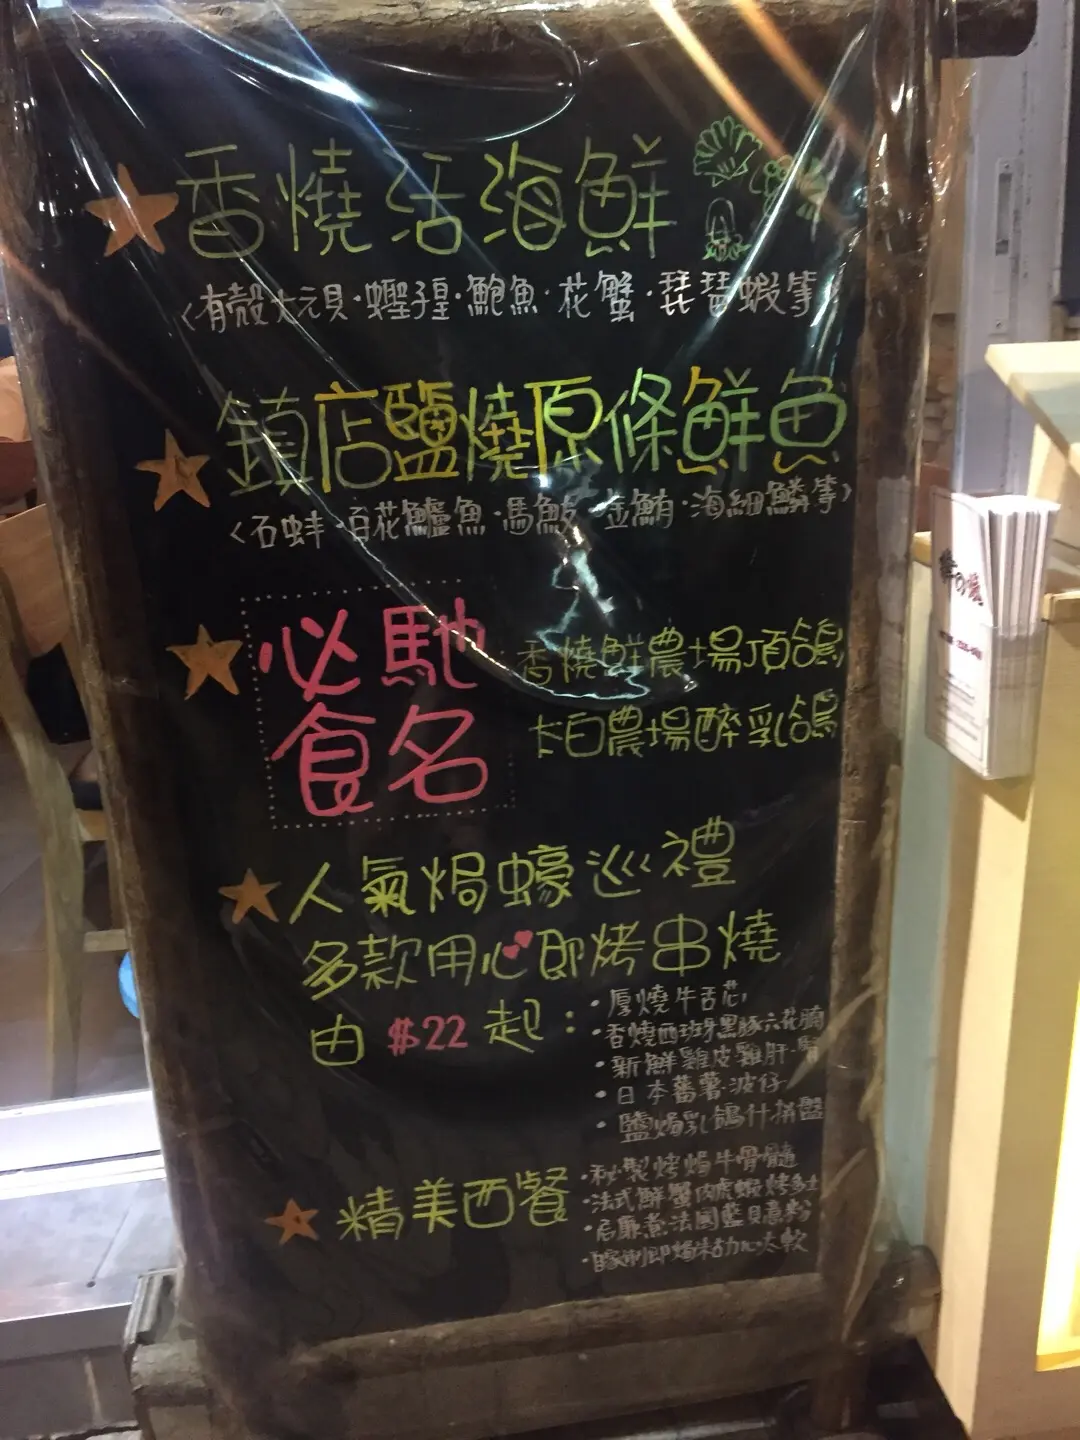 香燒活海鮮
<有殼大元貝·蟶子皇·鮑魚·花蟹·琵琶蝦等
鎮店鹽燒原條鮮魚
<石蚌·百花鱸魚·馬鮫·金鮪·海細鱗等>
必馳
食名
香燒鮮農場頂鴿
卡白農場醉乳鴿
人氣焗蠔巡禮
多款用心即烤串燒
由 $22 起：
·厚燒牛舌芯
·香燒西班牙黑豚六花腩
·新鮮雞皮·雞肝·腎
·日本蕃薯·波仔
·鹽焗乳鴿什拼盤
精美西餐
·秘製烤焗牛骨髓
·法式鮮蟹肉虎蝦烤多士
·忌廉煮法國藍貝意粉
·自家制即焗朱古力心太軟